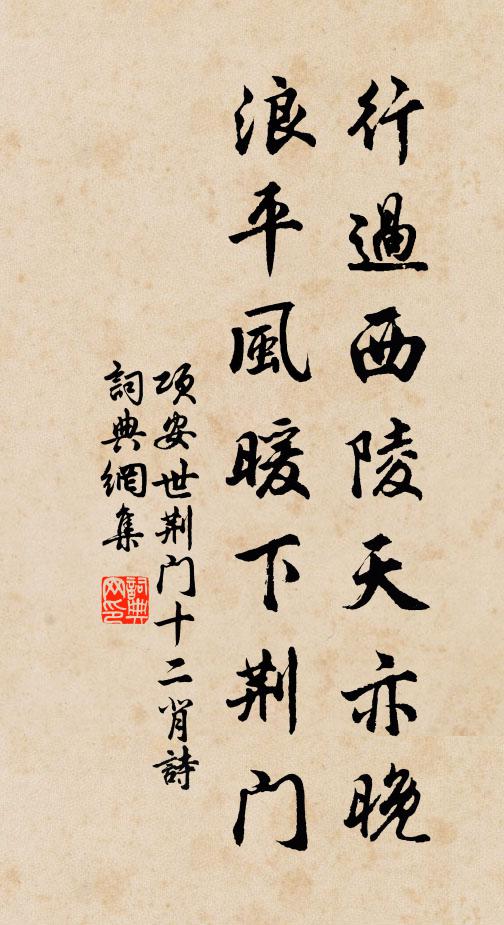 行過西陵天亦晚
浪平風暖下荆门
項安世荆门十二肖詩
詞典網集
詞典网印